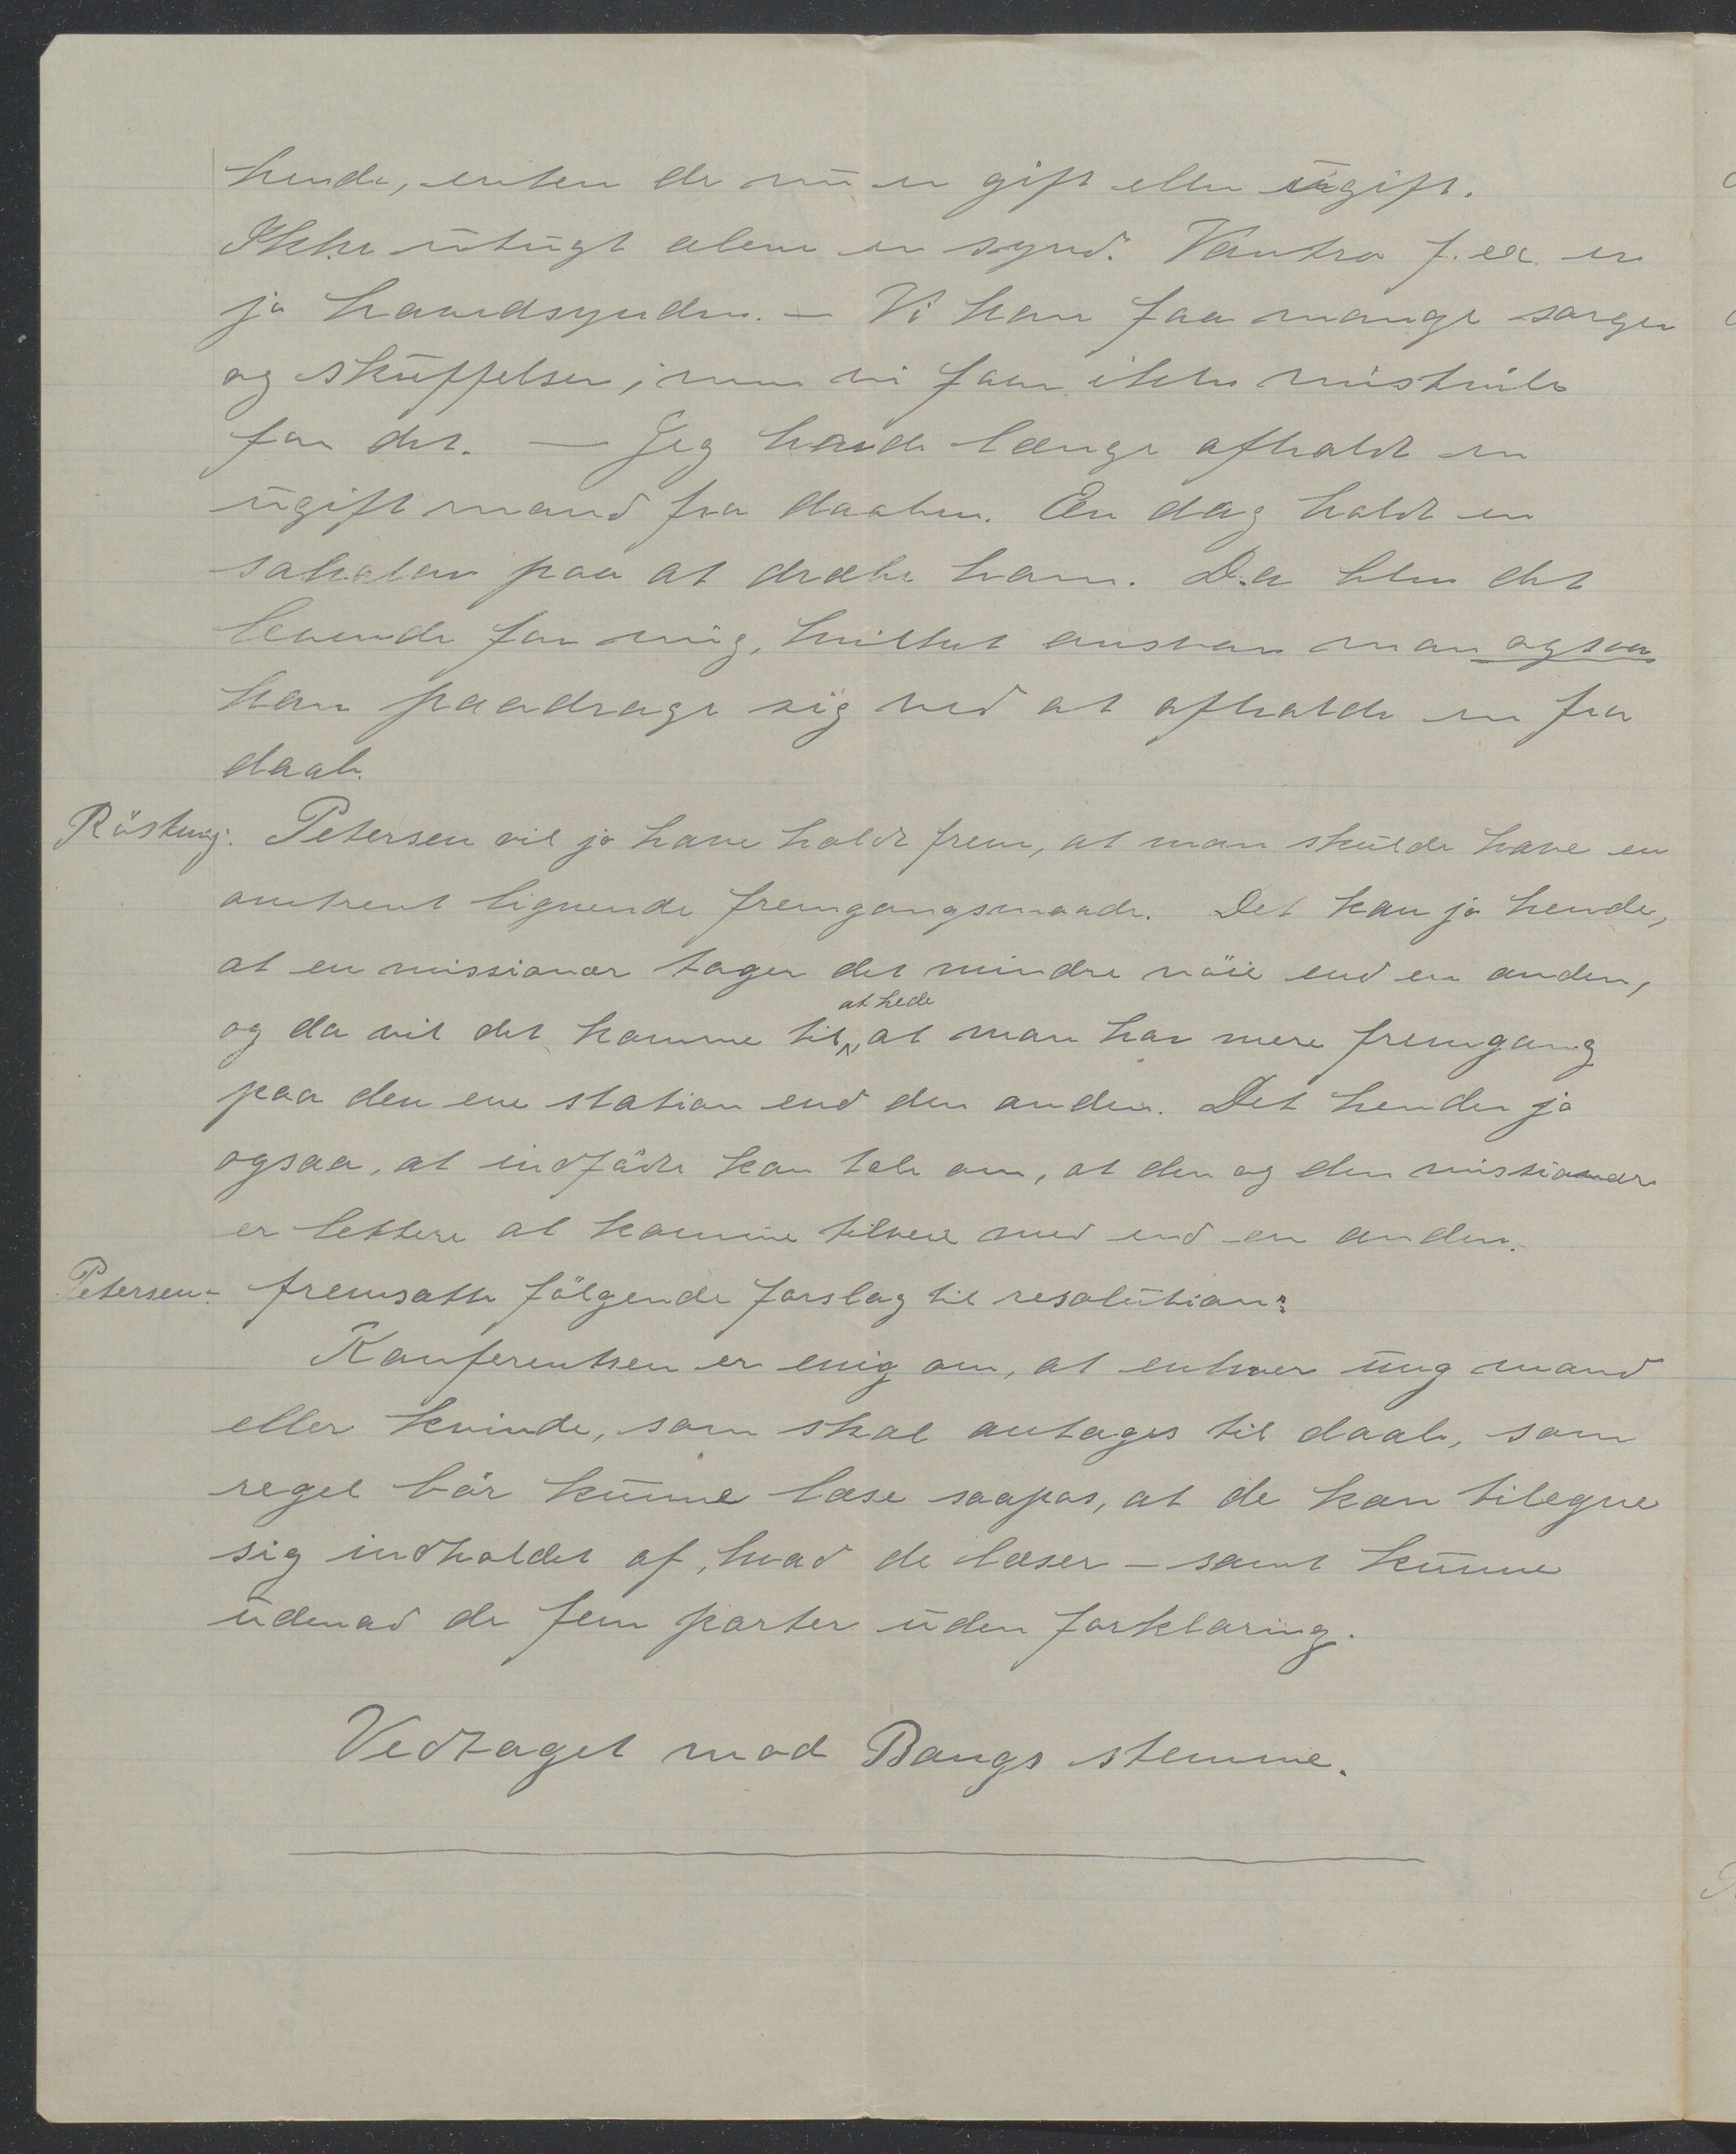 hende, enten de nu er gift eller ugift.
Ikke utugt alene er synd. Vantro f. ex. er
jo hovedsynden. — Vi kan faa mange sorger
og skuffelser; men vi faar ikke mistvile
for det. — Jeg havde længe afholdt en
ugift mand fra daaben. En dag holdt en
sakalav paa at dræbe ham. Da blev det
levende for mig, hvilket ansvar man ogsaa
kan paadrage sig ved at afholde en fra
daab.
Röstvig: Petersen vil jo have holdt frem, at man skulde have en
omtrent lignende fremgangsmaade. Det kan jo hende,
at en missionær tager det mindre nöie end en anden,
og da vil det komme til at hede at man har mere fremgang
paa den ene station end den anden. Det hender jo
ogsaa, at indfödte kan tale om, at den og den missionær
er lettere at komme tilveie med end en anden.
Petersen: fremsatte fölgende forslag til resolution:
Konferentsen er enig om, at enhver ung mand
eller kvinde, som skal antages til daab, som
regel bör kunne læse saapas, at de kan tilegne
sig indholdet af, hvad de læser — samt kunne
udenad de fem parter uden forklaring.
Vedtaget mod Bangs stemme.